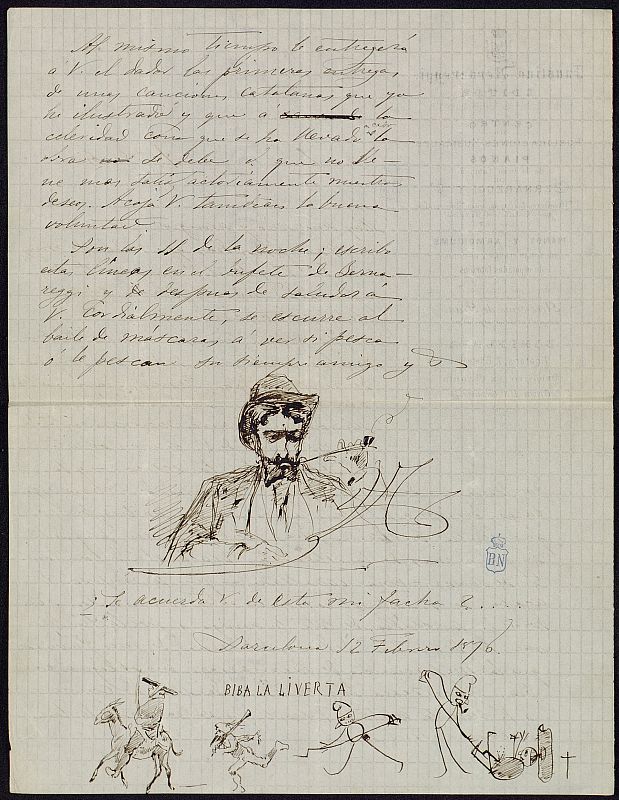 Al mismo tiempo le entregará
á V. el dador las primeras entregas
de unas canciones catalanas que yo
he ilustrado y que a la
celeridad con que se ha llevado la
obra se debe a que no lle-
ne mas satisfactoriamente nuestros
deseos. Acoja V. tambien la buena
voluntad.
Son las 11 de la noche; escribo
estas lineas en el bufete de Berna-
reggi y despues de saludar á
V. cordialmente, se escurre al
baile de máscaras á ver si pesca
ó le pescan su siempre amigo y
¿Se acuerda V. de esta mi facha?....
Barcelona 12 Febrero 1876.
BIBA LA LIVERTA
BN